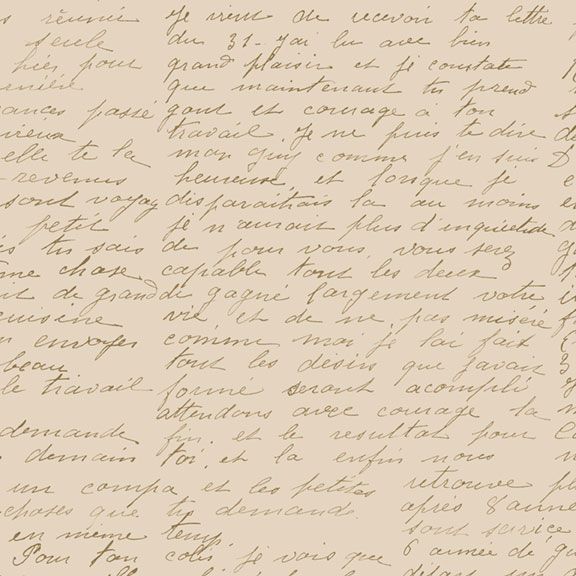 réunir
seule
bien pour
dernière
ances passé
vieux
elle te la
-revenus
sont voyag
petit
is tu sais
me chose
it de grand
cuisine
n envoyer
beau
le travail
demande
demain
un compa et les petites
choses que tu demande.
en même temp.
Pour ton colis, je vois que
Je vient de recevoir ta lettre
du 31- j'ai lu avec bien
grand plaisir et je constate
que maintenant tu prend
gout et courage à ton
travail. Je ne puis te dire
mon guy comme j'en suis
heureuse, et lorsque je
disparaitrais la au moins
je n'aurait plus d'inquietude
de pour vous, vous serez
capable tout les deux
de gagné largement votre
vie et de ne pas miséré
comme moi je l'ai fait
tout les désirs que j'avait
formé seront acompli
attendons avec courage la
fin. et le resultat pour
toi, et la enfin nous
retrouve
après 8 anné
sont service
6 année de